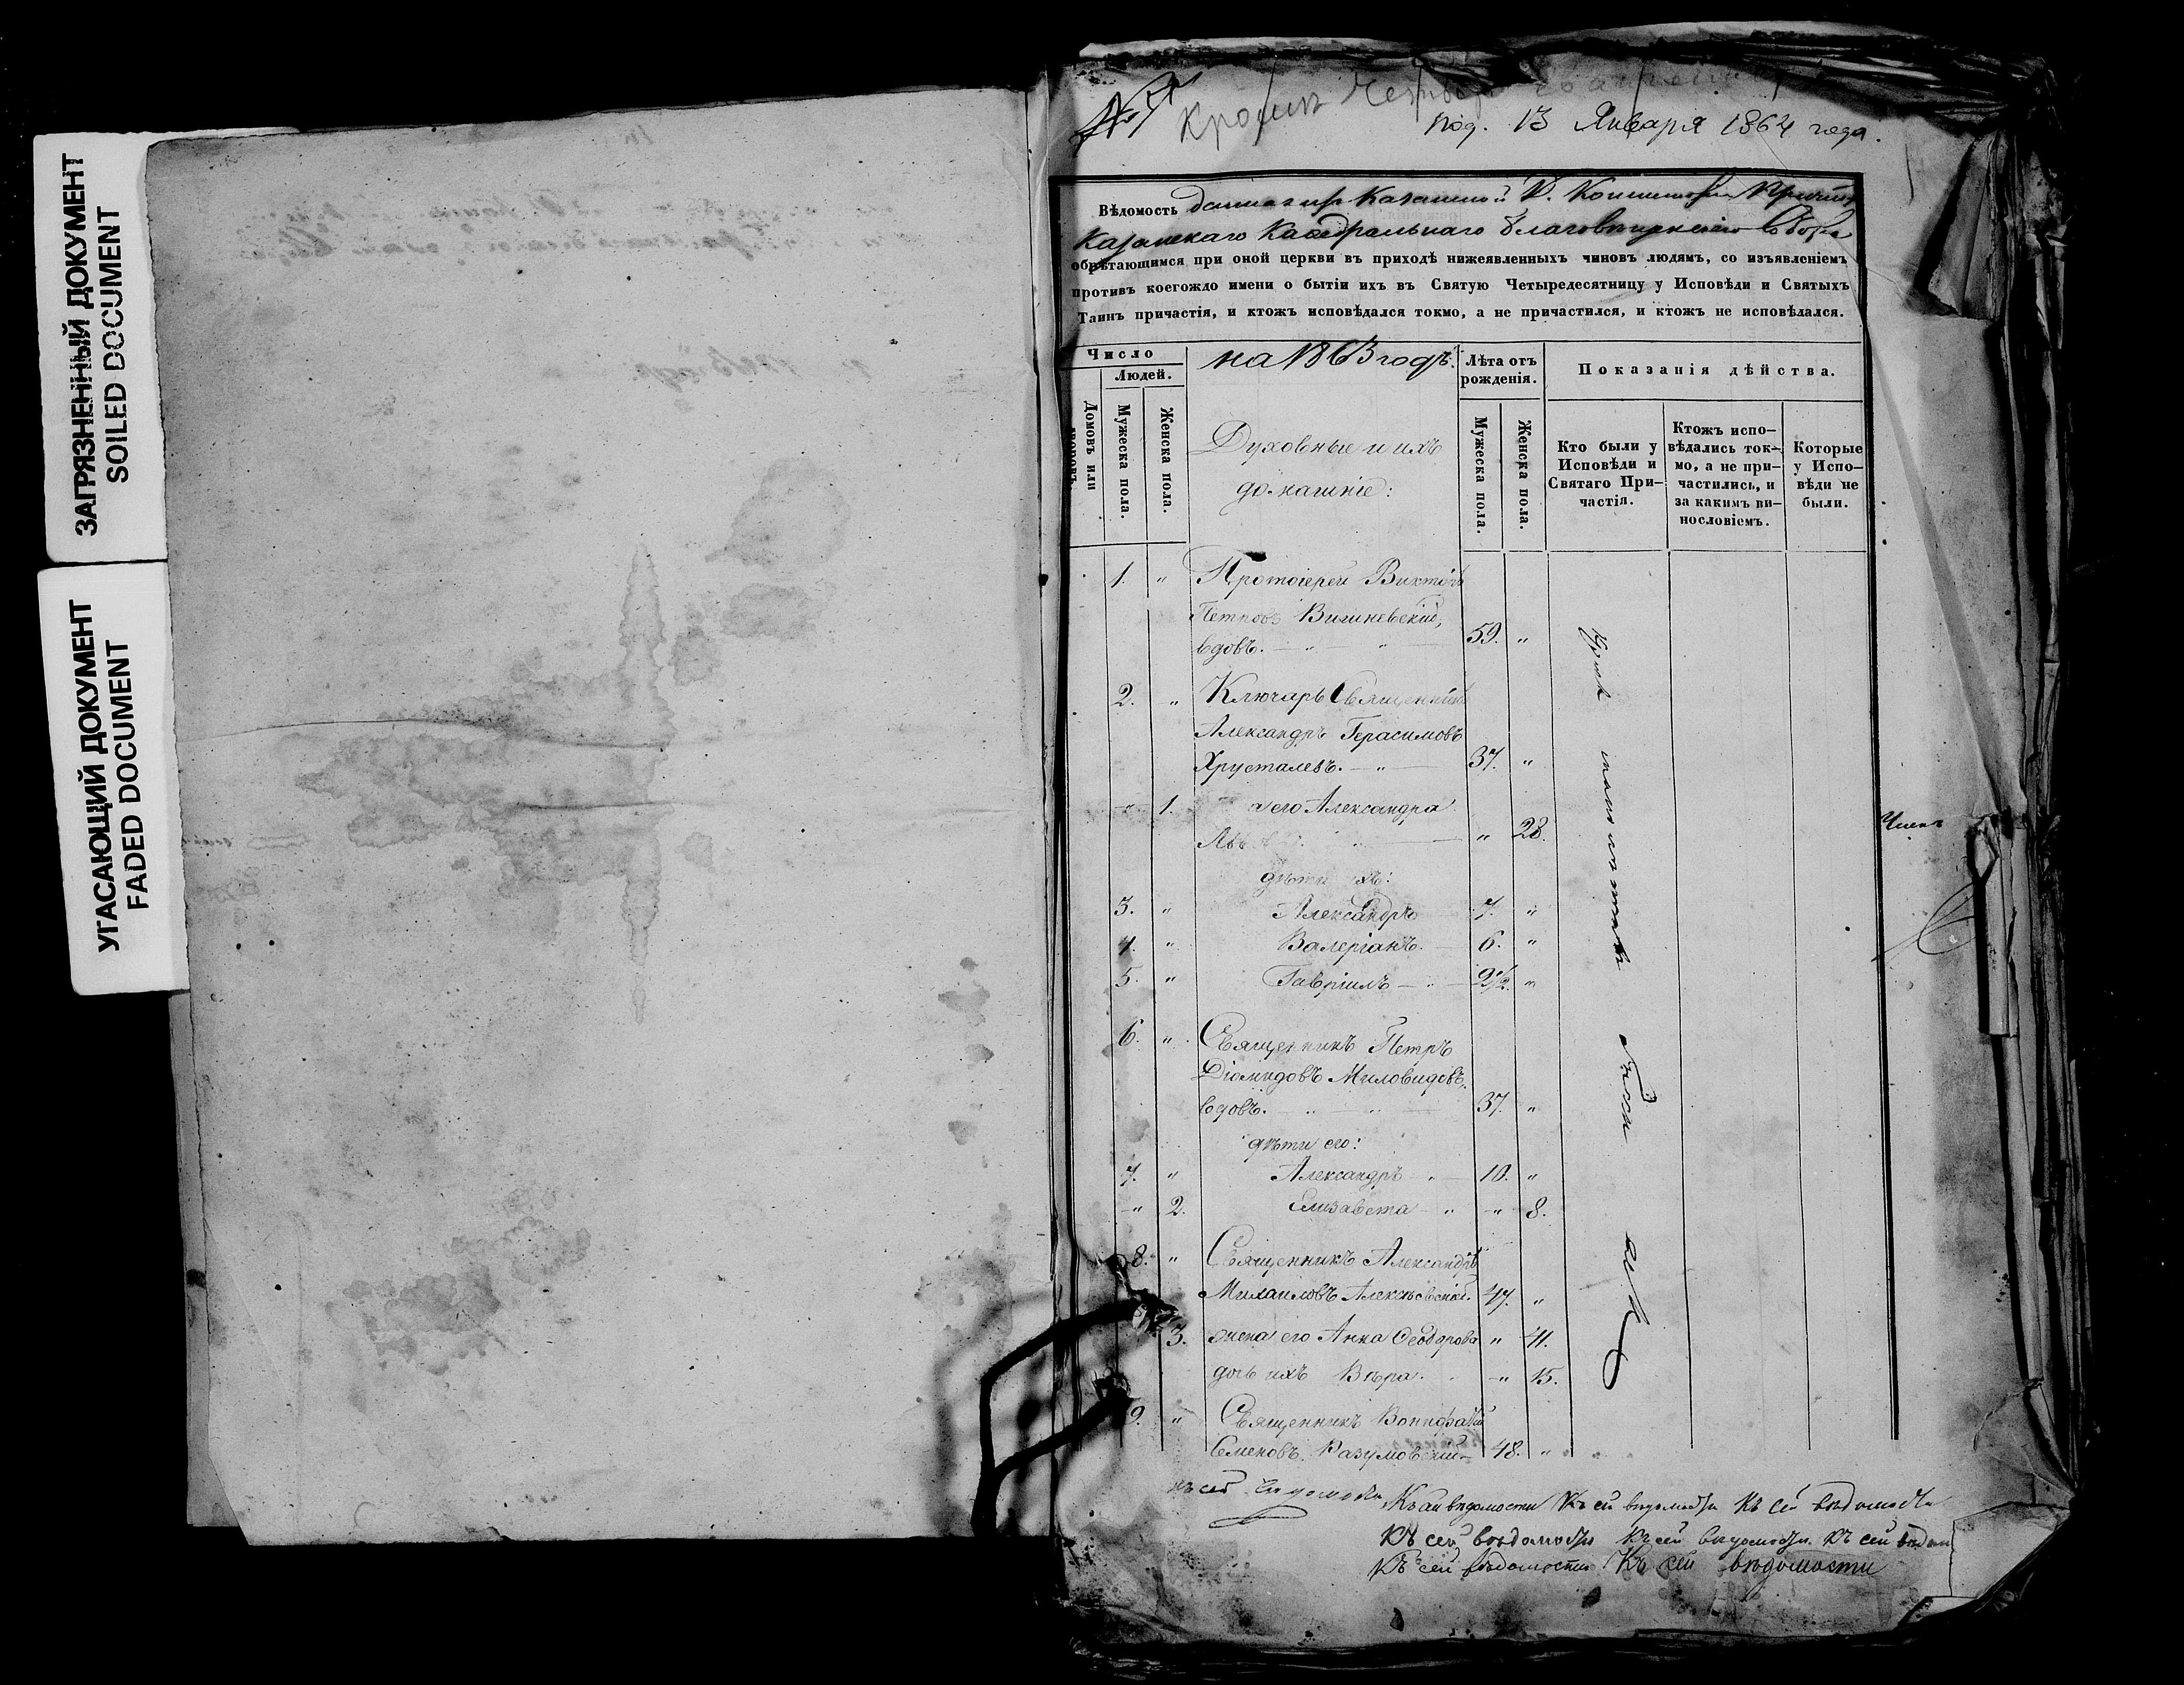 ЗАГРЯЗНЕННЫЙ ДОКУМЕНТ
SOILED DOCUMENT
УГАСАЮЩИЙ ДОКУМЕНТ
FADED DOCUMENT
под. 13 Января 1864 года.
Вѣдомость данная изъ Казанской Д. Консисторіи
Казанскаго Каѳедральнаго Благовѣщенскаго Собора
обрѣтающимся при оной церкви въ приходѣ нижеявленныхъ чиновъ людямъ, со изъявленіемъ
противъ коегождо имени о бытіи ихъ въ Святую Четыредесятницу у Исповѣди и Святыхъ
Таинъ причастія, и ктожъ исповѣдался токмо, а не причастился, и ктожъ не исповѣдался.
Число
Людей.
Домовъ или дворовъ.
Мужеска пола.
Женска пола.
на 1863 годъ.
Духовные и ихъ
домашніе:
Лѣта отъ рожденія.
Мужеска пола.
Женска пола.
Показанія дѣйства.
Кто были у
Исповѣди и
Святаго При-
частія.
Ктожъ испо-
вѣдались ток-
мо, а не при-
частились, и
за какимъ ви-
нословіемъ.
Которые
у Испо-
вѣди не
были.
1. " Протоіерей Викторъ
Петровъ Вишневскій,
вдовъ. — " — " 59. "
2. " Ключарь Священникъ
Александръ Герасимовъ
Хрусталевъ. — " — 37. "
" 1. его Александра
" 28.
дѣти ихъ:
3. " Александръ 7. "
4. " Валеріанъ. — 6. "
5. " Гавріилъ — " 2½. "
6. " Священникъ Петръ
Діомидовъ Миловидовъ,
вдовъ. — " — " 37. "
дѣти его:
7. " Александръ — " 10. "
" 2. Елизавета — " " 8.
8. " Священникъ Александръ
Михаиловъ Алексѣевскій. 47. "
3. жена его Анна Ѳеодорова " 41.
дочь ихъ Вѣра. " 15.
9. " Священникъ Вонифатій
Семеновъ Разумовскій — 48. "
Членъ
къ сей вѣдомости Къ сей вѣдомости Къ сей вѣдомости Къ сей вѣдомости
Къ сей вѣдомости Къ сей вѣдомости Къ сей
Къ сей вѣдомости Къ сей вѣдомости